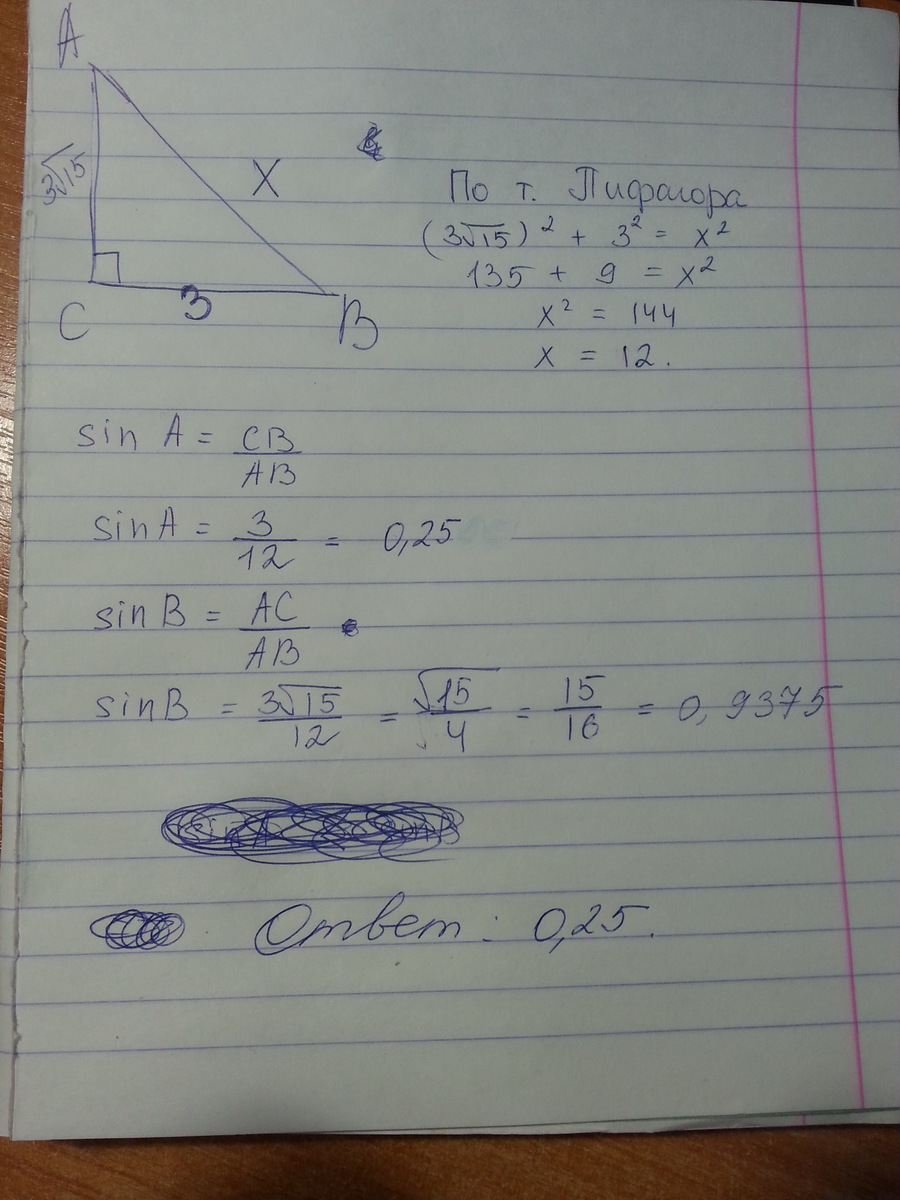 A
3√15
X
C
3
B
По т. Пифагора
(3√15)² + 3² = x²
135 + 9 = x²
x² = 144
x = 12.
sin A = CB/AB
sin A = 3/12 = 0,25
sin B = AC/AB
sin B = 3√15/12 = √15/4 = 15/16 = 0,9375
Ответ: 0,25.